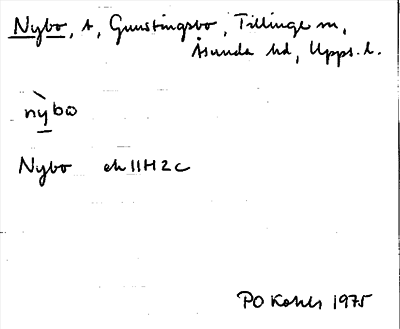 Nybo, t, Gunstingsbo, Tillinge sn,
Åsunda hd, Upps. l.
nỳbω
Nybo ek 11H2c
PO Kohls 1975